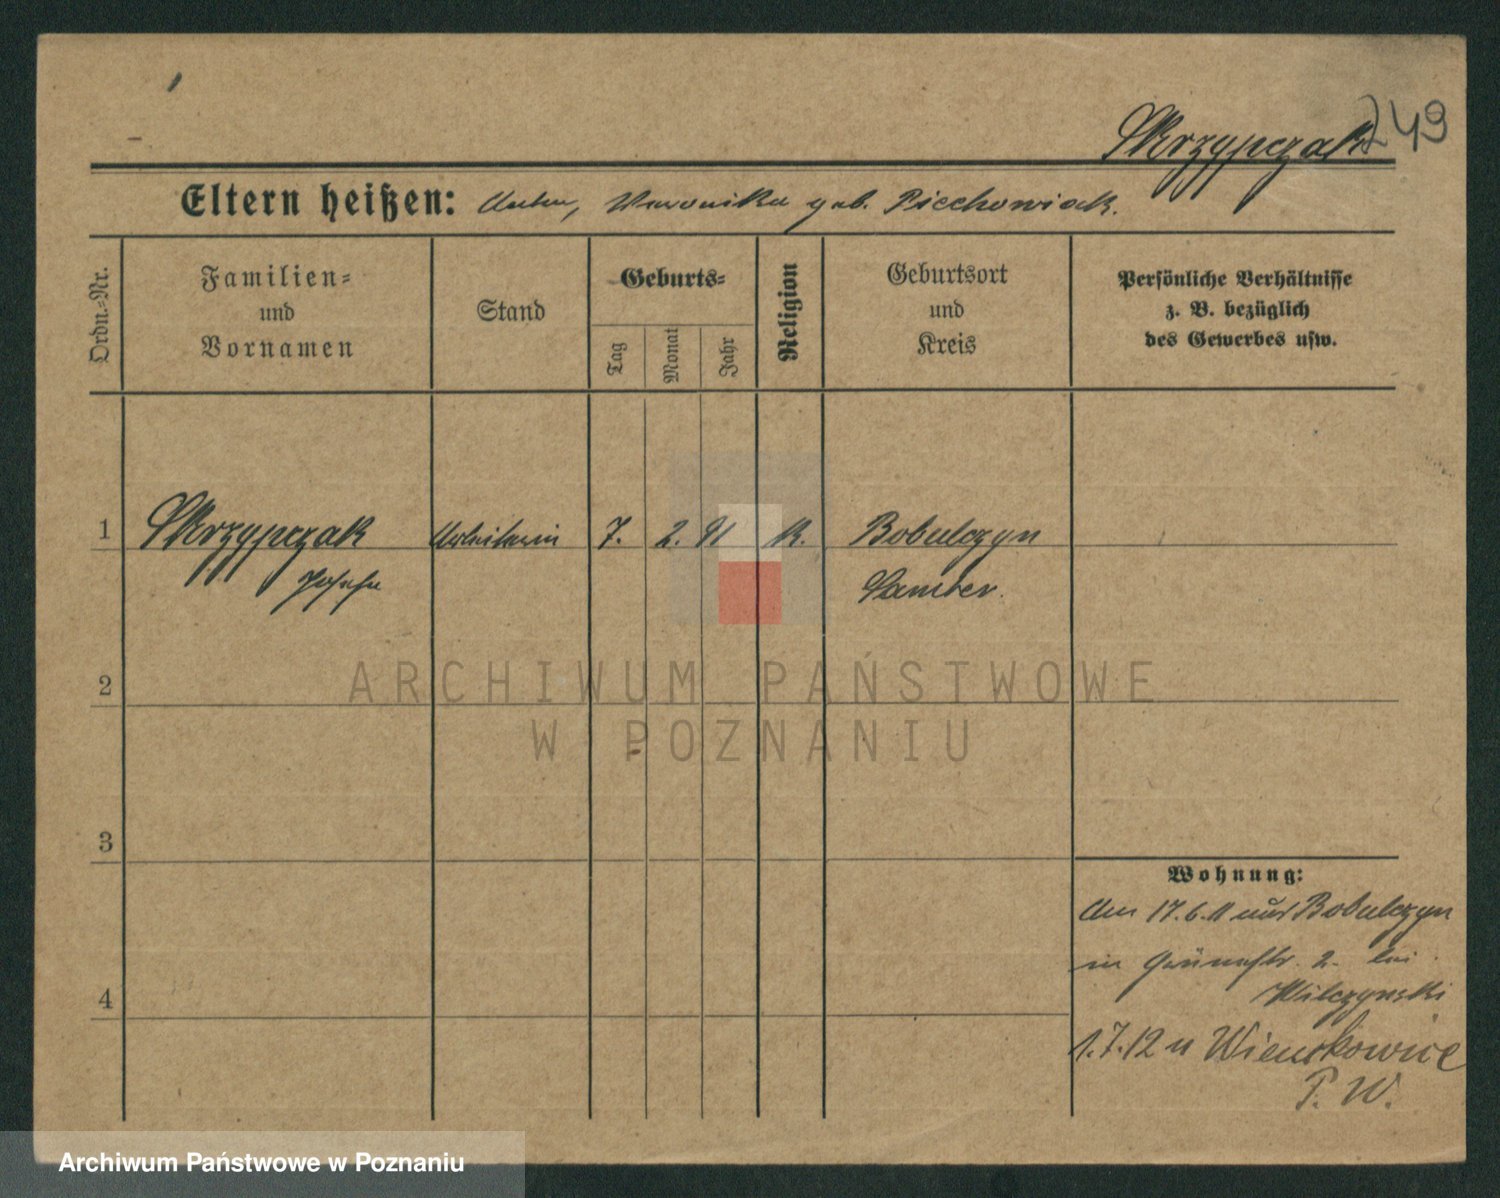 Skrzypczak 249
Eltern heißen: Anton, Weronika geb. Piechowiak.
Ordn.-Nr.
Familien-
und
Vornamen
Stand
Geburts-
Tag
Monat
Jahr
Religion
Geburtsort
und
Kreis
Persönliche Verhältnisse
z. B. bezüglich
des Gewerbes usw.
1 Skrzypczak Arbeiterin 7. 2. 91 K. Bobulczyn
Josefa Samter.
2
ARCHIWUM PAŃSTWOWE
W POZNANIU
3
Wohnung:
Am 17.6.11 aus Bobulczyn
4
in Grünestr. 2. bei
Wilczynski
1.7.12 n
P. W.
Archiwum Państwowe w Poznaniu